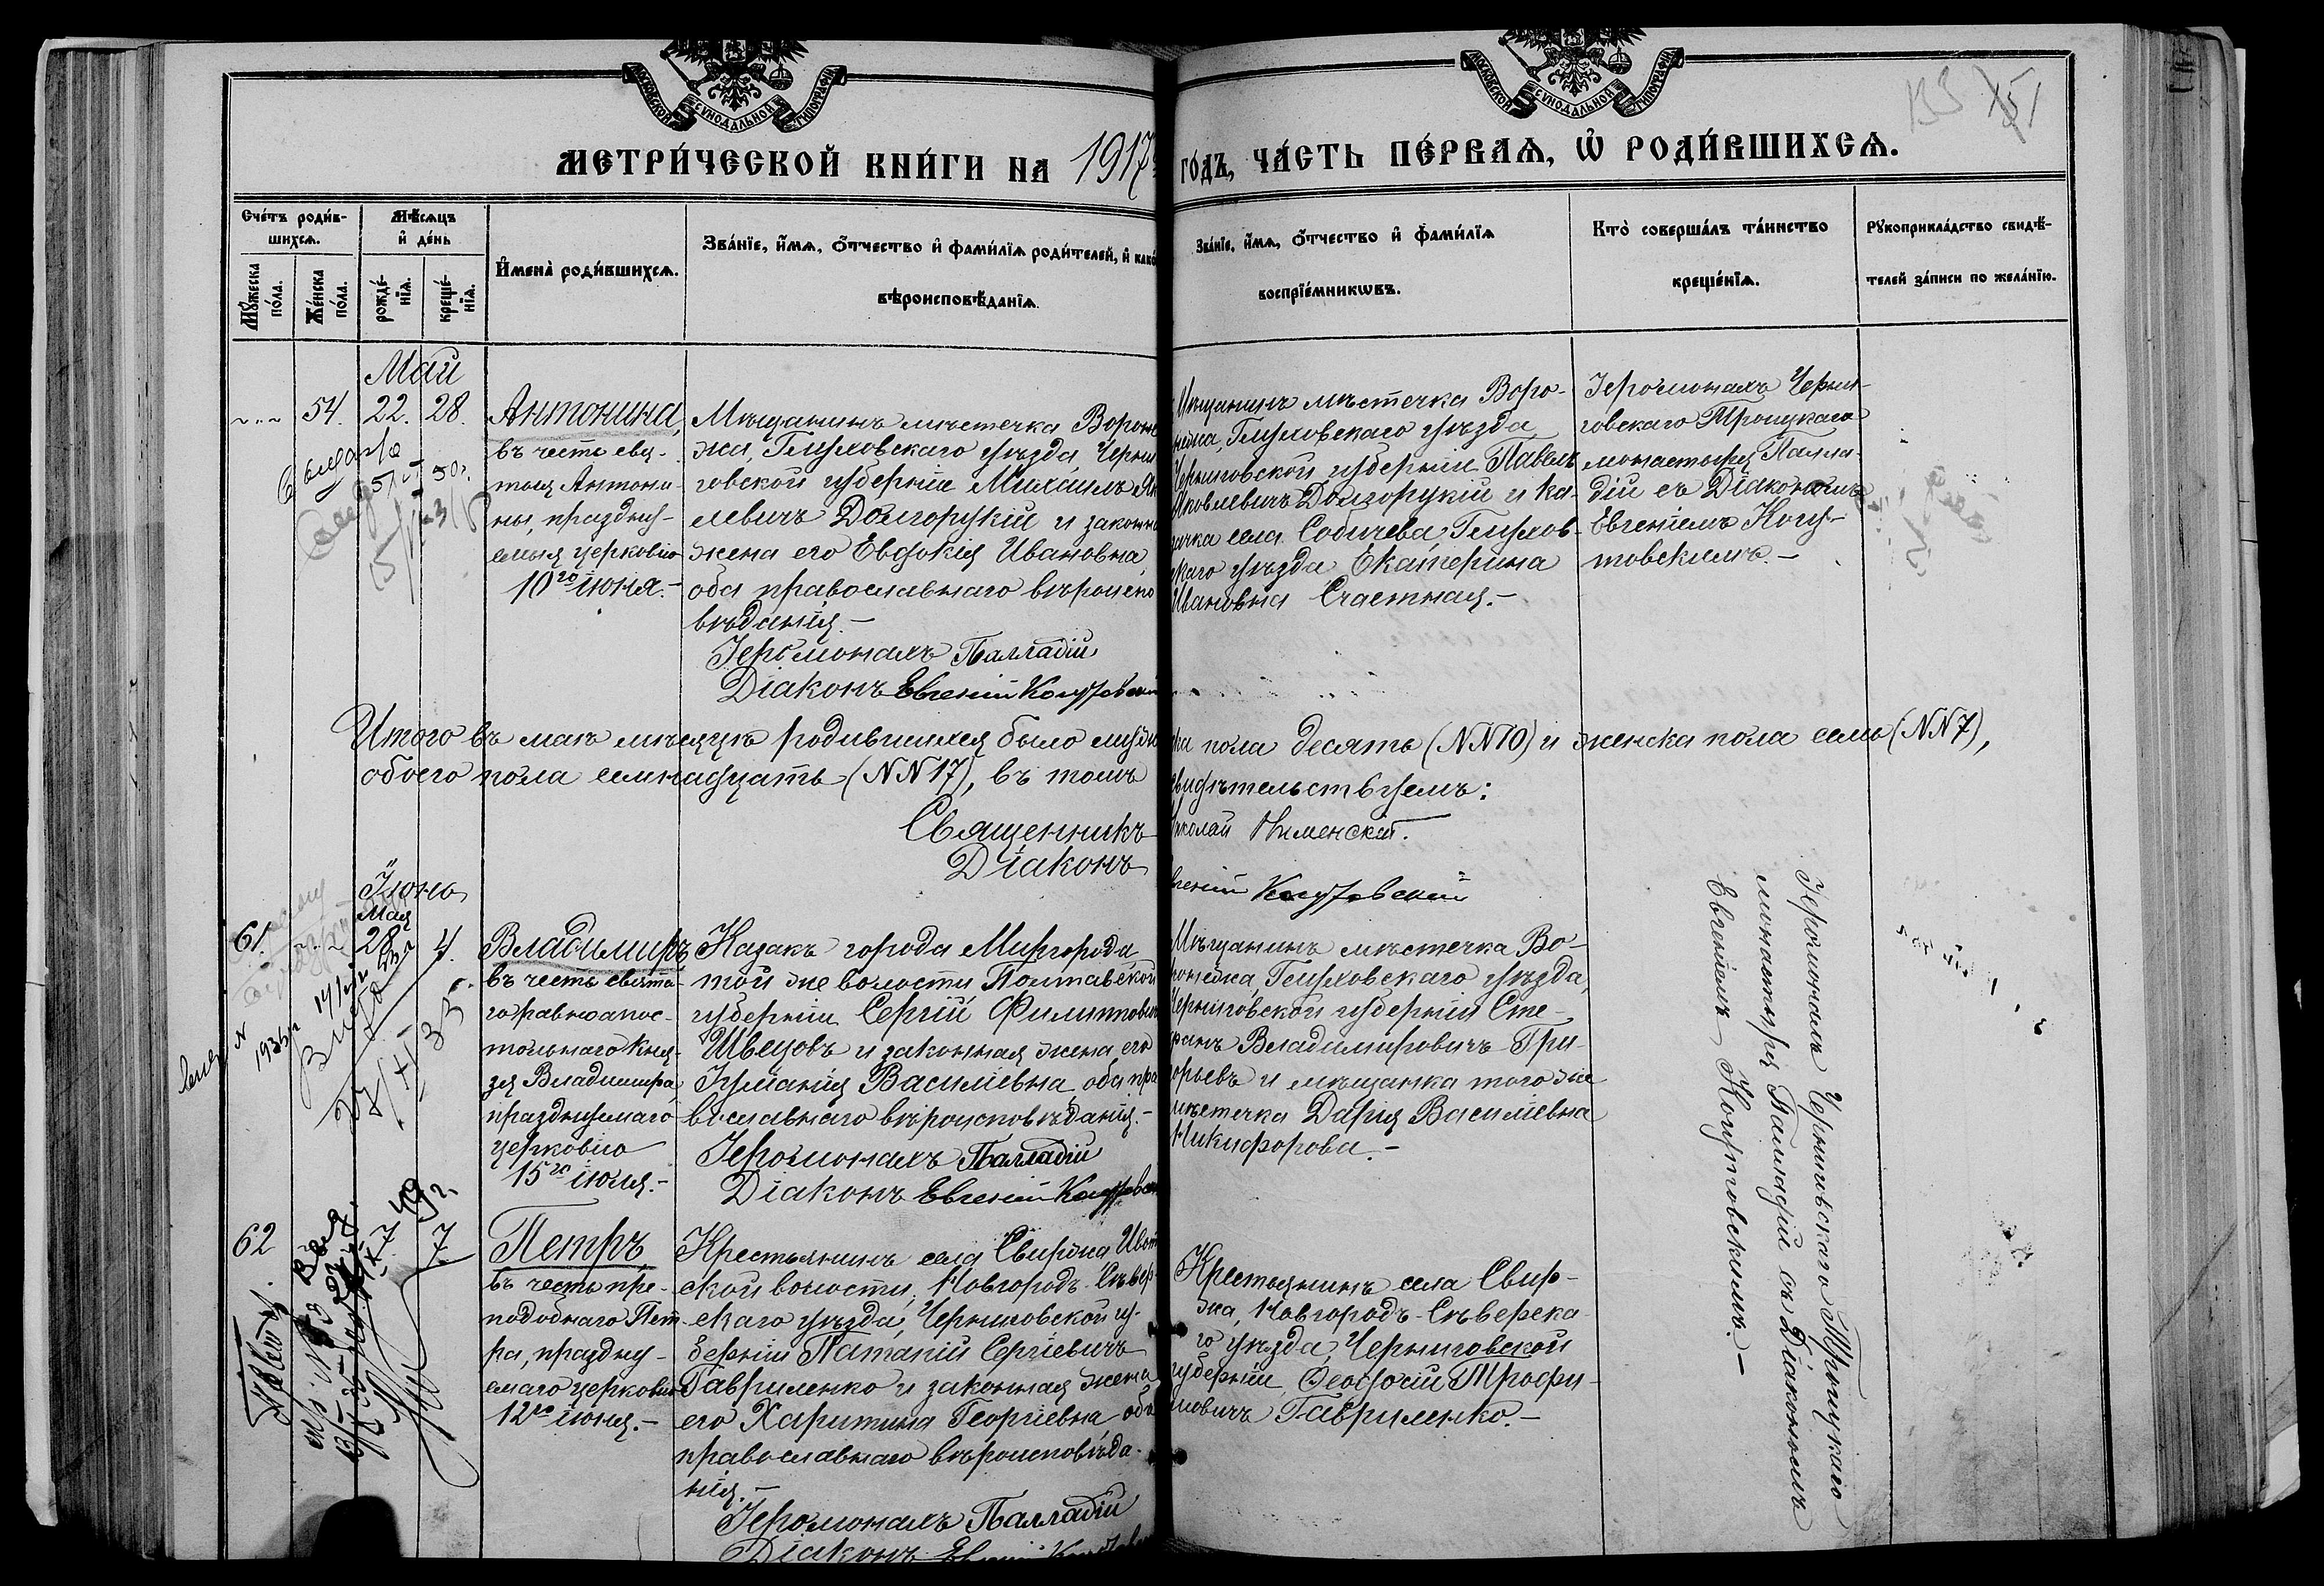 МОСКОВСКОЙ СѴНОДАЛЬНОЙ ТИПОГРАФІИ
МОСКОВСКОЙ СѴНОДАЛЬНОЙ ТИПОГРАФІИ
МЕТРИ́ЧЕСКОЙ КНИ́ГИ НА 1917й ГО́ДЪ, ЧА́СТЬ ПЕ́РВАѦ, Ѡ РОДИ́ВШИХСѦ.
Сче́тъ роди́в-
шихсѧ.
Мꙋ́жеска
по́ла.
Же́нска
по́ла.
Мѣ́сѧцъ
и҆ де́нь
рожде́-
нїѧ.
креще́-
нїѧ.
И҆мена̀ роди́вшихсѧ.
Зва́нїе, и҆́мѧ, ѻ҆́тчество и҆ фами́лїѧ роди́телей, и҆ како́
вѣроисповѣ́данїѧ
Зва́нїе, и҆́мѧ, ѻ҆́тчество и҆ фами́лїѧ
воспрїе́мникѡвъ.
Кто̀ соверша́лъ та́инство
креще́нїѧ.
Рꙋкоприкла́дство свидѣ́-
телей за́писи по жела́нїю.
Май
54. 22. 28.
Антонина,
въ честь свя-
тыя Антони-
ны, праздну-
емыя церковію
10го іюня.-
Мѣщанинъ мѣстечка Вороне
жа, Глуховскаго уѣзда, Черни
говской губерніи Михаилъ Яко
влевичъ Долгорукій и законна
жена его Евдокія Ивановна,
оба православнаго вѣроиспо
вѣданія.-
Іеромонахъ Палладій
Діаконъ Евгеній Когутовскій
Мѣщанинъ мѣстечка Воро-
нежа, Глуховскаго уѣзда,
Черниговской губерніи Павелъ
Яковлевичъ Долгорукій и ка-
зачка села Собичева, Глухов-
скаго уѣзда Екатерина
Ивановна Счастная.-
Іеромонахъ Черни-
говскаго Троицкаго
монастыря Палла-
дій съ Діакономъ
Евгеніемъ Когу-
товскимъ.-
Итого въ маѣ мѣсяцѣ родившихся было муже
ска пола десять (NN10) и женска пола семь (NN7),
обоего пола семнадцать (NN17), въ томъ
свидѣтельствуемъ:
Священникъ Николай
Діаконъ Евгеній Когутовскій
Іюнь
Мая
61. 28 4.
Владиміръ
въ честь свята-
го равноапос-
тольнаго Кня-
зя Владиміра,
празднуемаго
церковію
15го іюля.-
Казакъ города Миргорода,
той же волости Полтавской
губерніи Сергій Филиппович
Швецовъ и законная жена его
Іуліанія Василіевна, оба пра
вославнаго вѣроисповѣданія.-
Іеромонахъ Палладій
Діаконъ Евгеній Когутовскій
Мѣщанинъ мѣстечка Во-
ронежа, Глуховскаго уѣзда,
Черниговской губерніи Сте-
фанъ Владиміровичъ Гри-
горьевъ и мѣщанка того же
мѣстечка Дарія Василіевна
Никифорова.-
Іеромонахъ Черниговскаго Троицкаго
монастыря Палладій съ Діакономъ
Евгеніемъ Когутовскимъ.-
62 7 7
Петръ,
въ честь пре-
подобнаго Пет-
ра, праздну-
емаго церковію
12го іюня.-
Крестьянинъ села Свиржа Ивот
ской волости, Новгородъ-Сѣвер-
скаго уѣзда, Черниговской гу-
берніи Патапій Сергіевичъ
Гавриленко и законная жена
его Харитина Георгіевна оба
православнаго вѣроисповѣда-
нія.-
Іеромонахъ Палладій
Діаконъ
Крестьянинъ села Свир-
жа, Новгородъ-Сѣверска-
го уѣзда, Черниговской
губерніи Ѳеодосій Трофи-
мовичъ Гавриленко.-